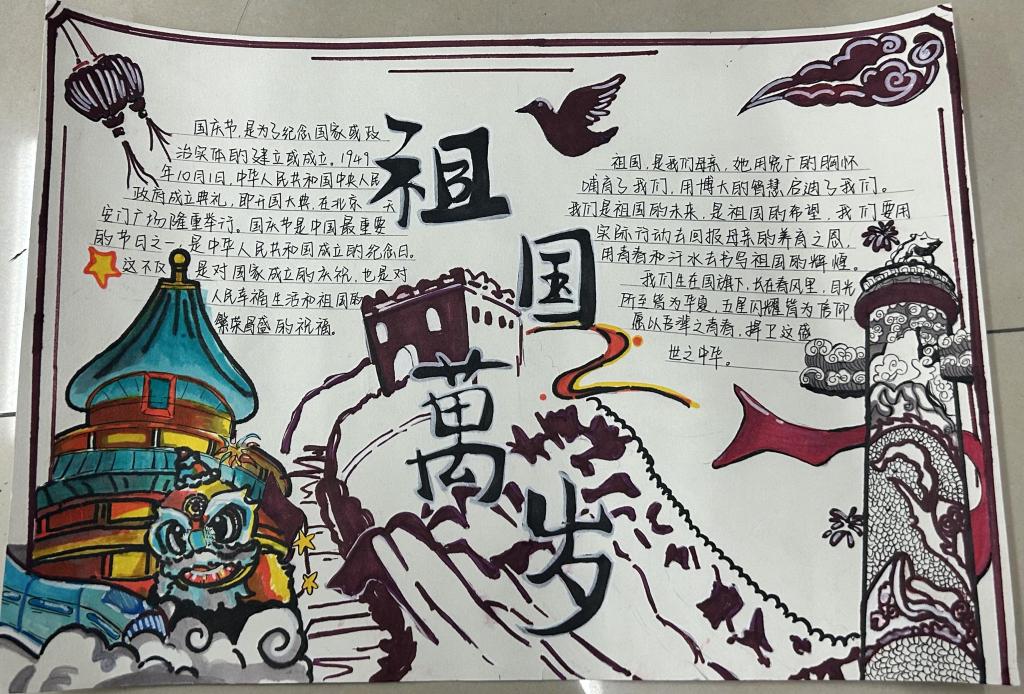 祖国万岁
国庆节，是为了纪念国家或政
治实体的建立或成立。1949
年10月1日，中华人民共和国中央人民
政府成立典礼，即开国大典，在北京天
安门广场隆重举行。国庆节是中国最重要
的节日之一，是中华人民共和国成立的纪念日。
这不仅是对国家成立的庆祝，也是对
人民幸福生活和祖国
繁荣昌盛的祝福。
祖国，是我们母亲，她用宽广的胸怀
哺育了我们，用博大的智慧启迪了我们。
我们是祖国的未来，是祖国的希望，我们要用
实际行动去回报母亲的养育之恩，
用青春和汗水去书写祖国的辉煌。
我们生在国旗下，长在春风里，目光
所至皆为华夏，五星闪耀皆为信仰
愿以吾辈之青春，捍卫这盛
世之中华。